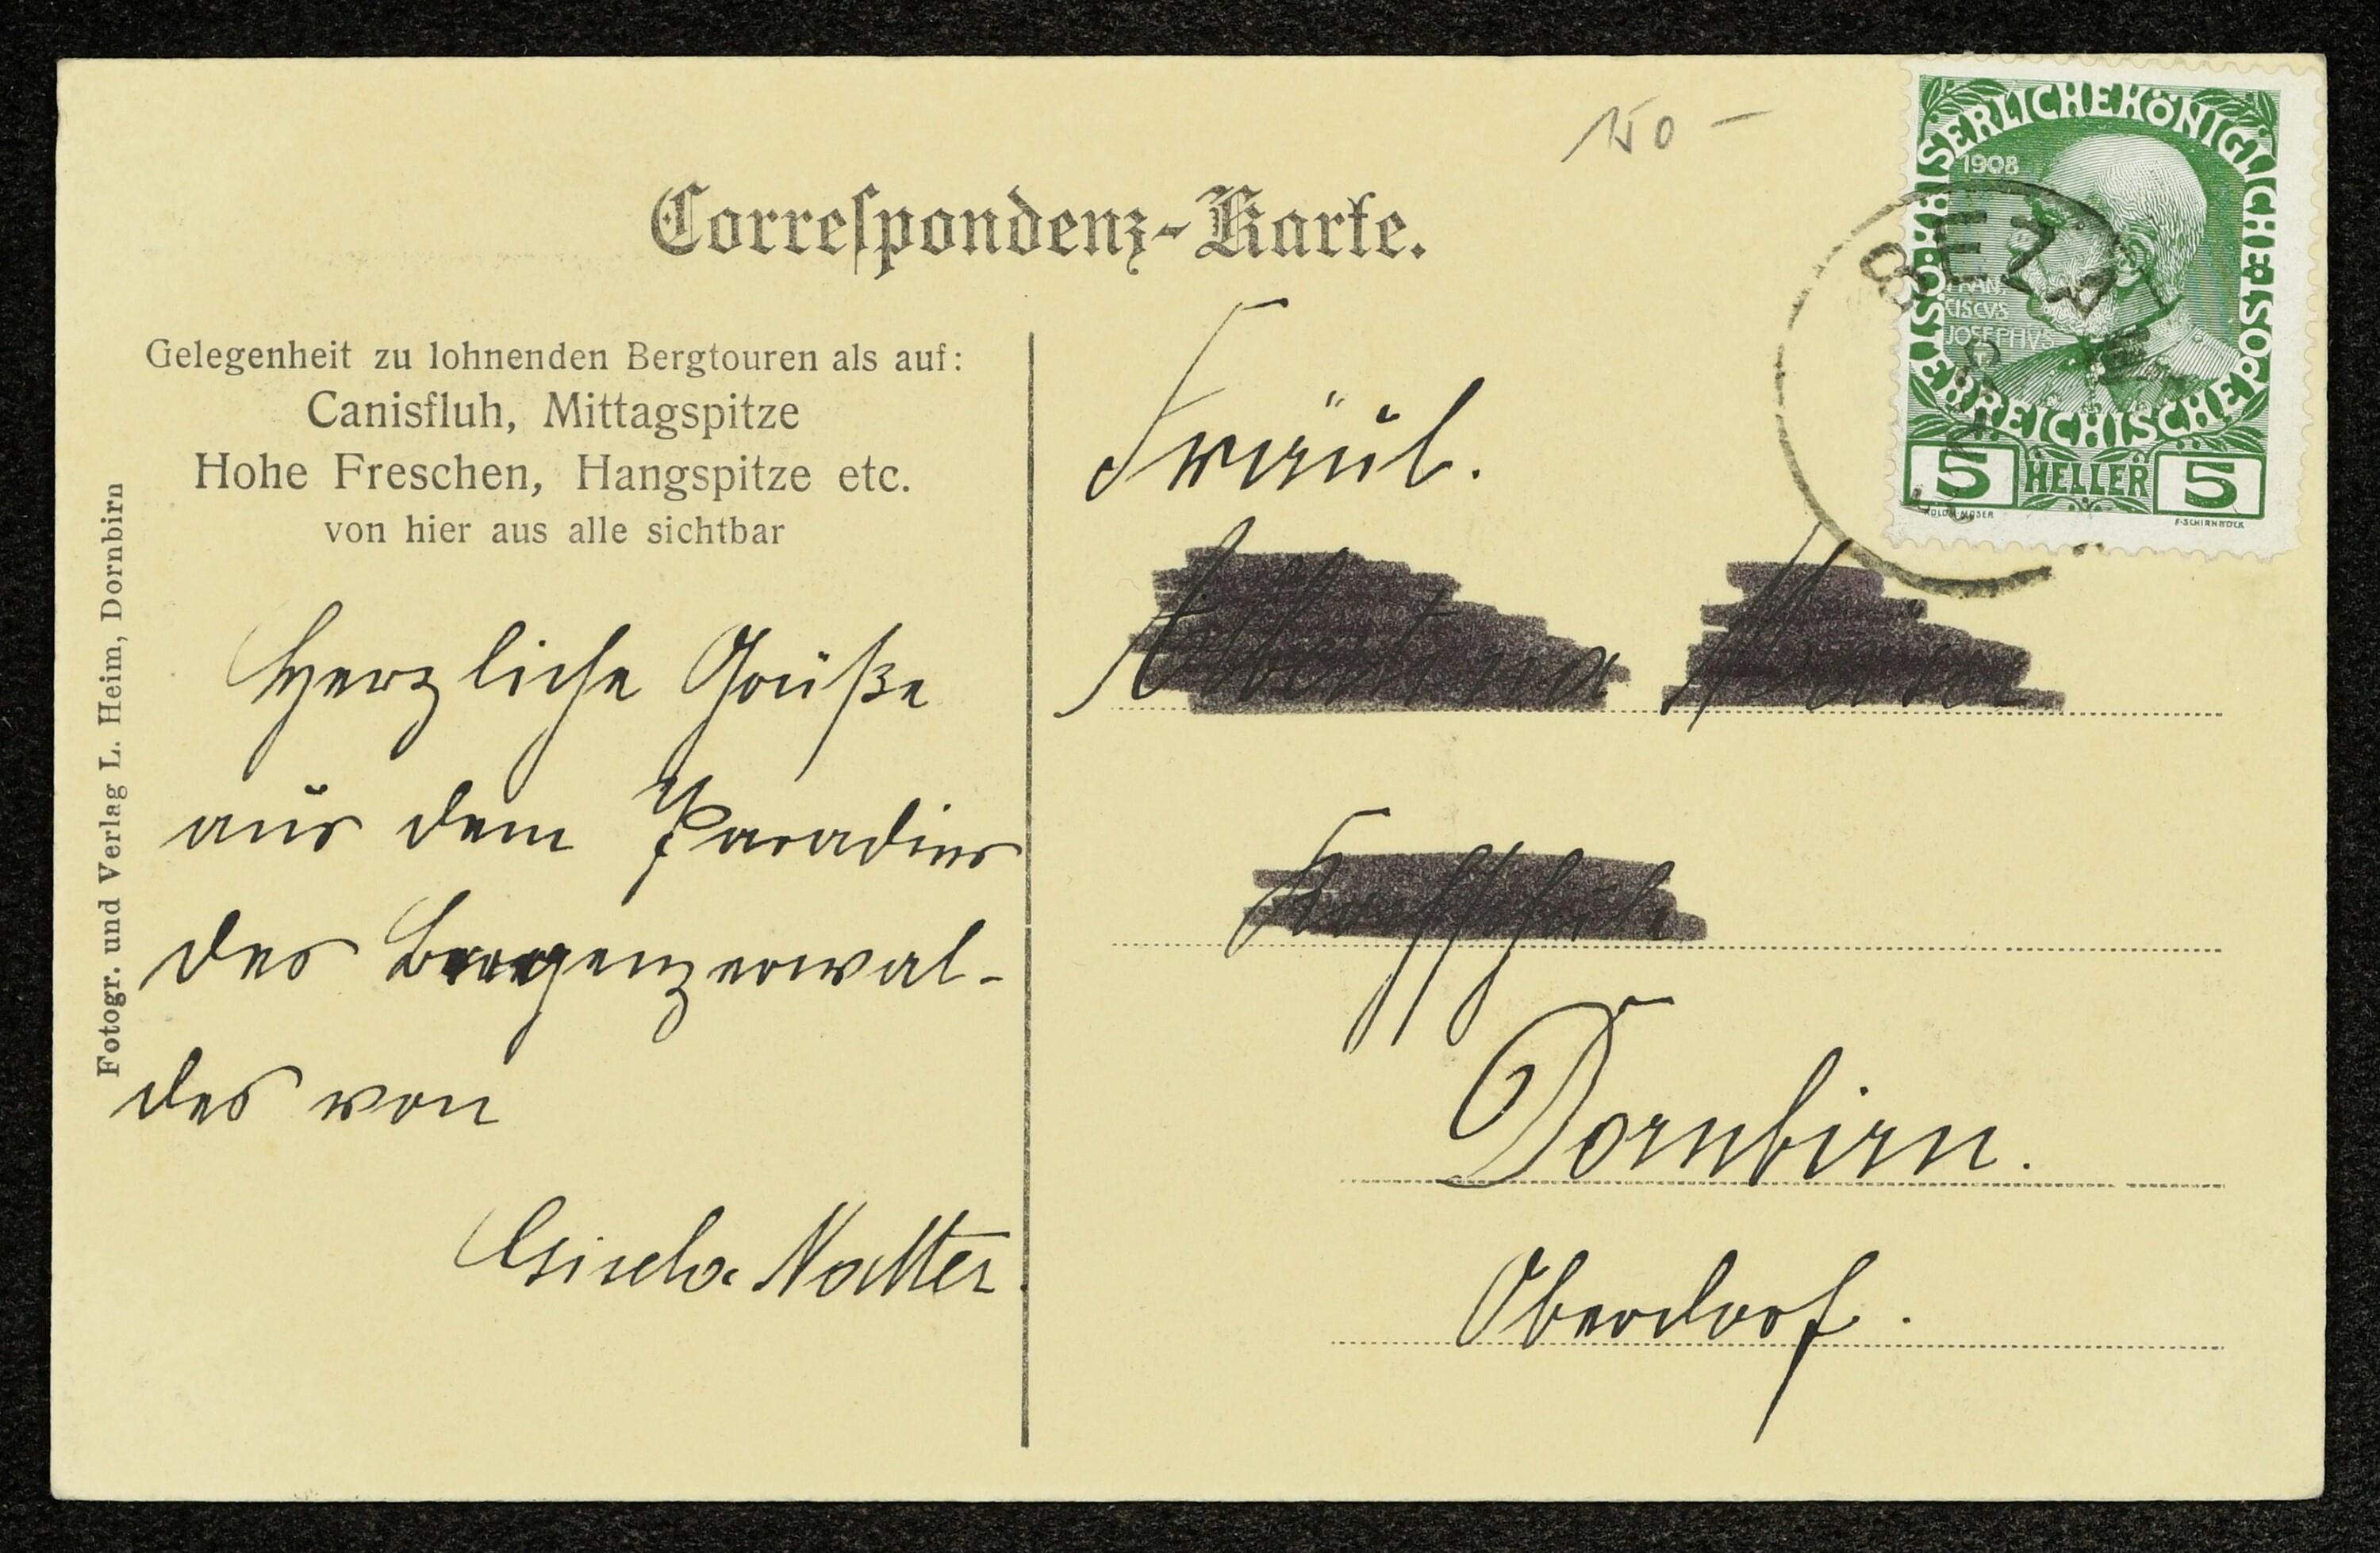 150 –
Correspondenz-Karte.
Gelegenheit zu lohnenden Bergtouren als auf:
Canisfluh, Mittagspitze
Hohe Freschen, Hangspitze etc.
von hier aus alle sichtbar
Fotogr. und Verlag L. Heim, Dornbirn
Herzliche Grüße
aus dem Paradies
des Bregenzerwal-
des von
Gisela Natter.
Fräul.
Dornbirn.
Oberdorf.
KAISERLICHE KÖNIGLICHE
ÖSTERREICHISCHE POST
1908
FRAN
CISCVS
JOSEPHVS
I
5 HELLER 5
KOLOM. MOSER
F. SCHIRNBÖCK
BEZAU